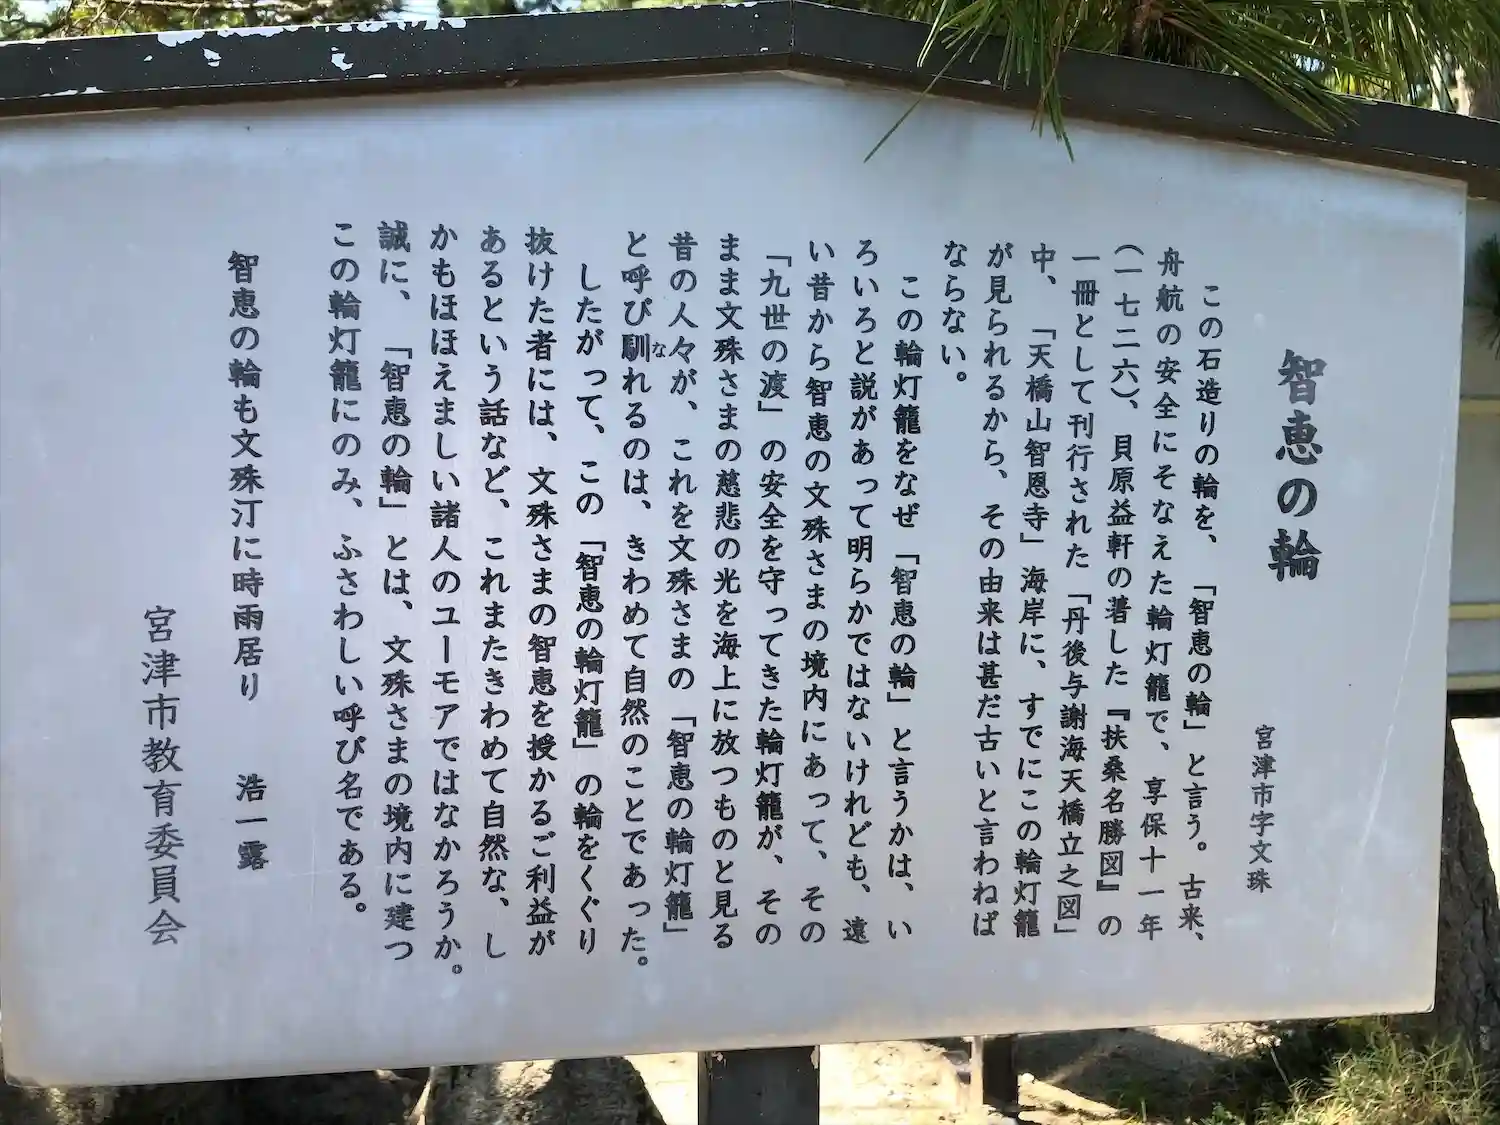 智恵の輪
宮津市字文珠
この石造りの輪を、「智恵の輪」と言う。古来、
舟航の安全にそなえた輪灯籠で、享保十一年
(一七二六)、貝原益軒の著した『扶桑名勝図』の
一冊として刊行された「丹後与謝海天橋立之図」
中、「天橋山智恩寺」海岸に、すでにこの輪灯籠
が見られるから、その由来は甚だ古いと言わねば
ならない。
この輪灯籠をなぜ「智恵の輪」と言うかは、い
ろいろと説があって明らかではないけれども、遠
い昔から智恵の文殊さまの境内にあって、その
「九世の渡」の安全を守ってきた輪灯籠が、その
まま文殊さまの慈悲の光を海上に放つものと見る
昔の人々が、これを文殊さまの「智恵の輪灯籠」
と呼び馴なれるのは、きわめて自然のことであった。
したがって、この「智恵の輪灯籠」の輪をくぐり
抜けた者には、文殊さまの智恵を授かるご利益が
あるという話など、これまたきわめて自然な、し
かもほほえましい諸人のユーモアではなかろうか。
誠に、「智恵の輪」とは、文殊さまの境内に建つ
この輪灯籠にのみ、ふさわしい呼び名である。
智恵の輪も文殊汀に時雨居り 浩一露
宮津市教育委員会